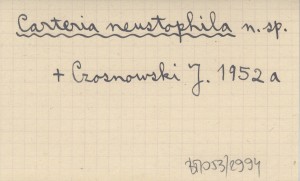 Carteria neustophila n. sp.
+ Czosnowski J. 1952 a